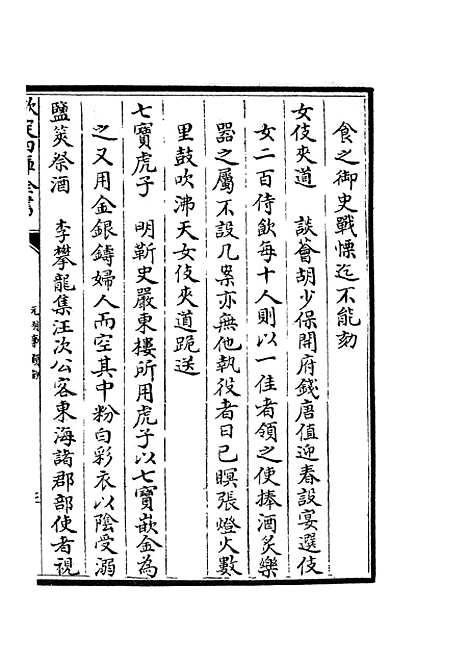 食之御史戰慄迄不能劾
女伎夾道　談薈胡少保開府錢唐值迎春設宴選伎
女二百侍飲每十人則以一佳者領之使捧酒炙樂
器之屬不設几案亦無他執役者日已暝張燈火數
里鼓吹沸天女伎夾道跪送
七寶虎子　明靳史嚴東樓所用虎子以七寶嵌金為
之又用金銀鑄婦人而空其中粉白彩衣以陰受溺
鹽筴祭酒　李攀龍集汪次公客東海諸郡部使者視
欽定四庫全書
元明事類鈔
三